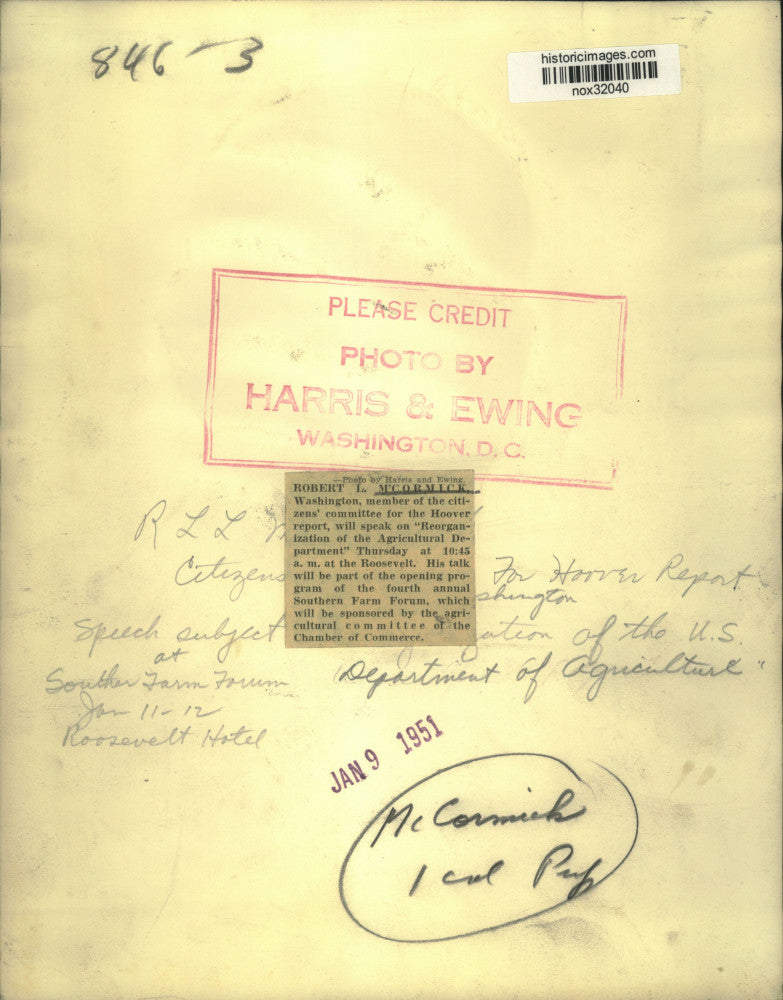 846-3
historicimages.com
nox32040
PLEASE CREDIT
PHOTO BY
HARRIS & EWING
WASHINGTON, D. C.
—Photo by Harris and Ewing.
ROBERT L. M'CORMICK,
Washington, member of the citi-
zens' committee for the Hoover
report, will speak on "Reorgan-
ization of the Agricultural De-
partment" Thursday at 10:45
a. m. at the Roosevelt. His talk
will be part of the opening pro-
gram of the fourth annual
Southern Farm Forum, which
will be sponsored by the agri-
cultural committee of the
Chamber of Commerce.
R L L
Citizens For Hoover Report
shington
Speech subject zation of the U.S.
at
Souther Farm Forum Department of Agriculture"
Jan 11-12
Roosevelt Hotel
JAN 9 1951
McCormick
1 col